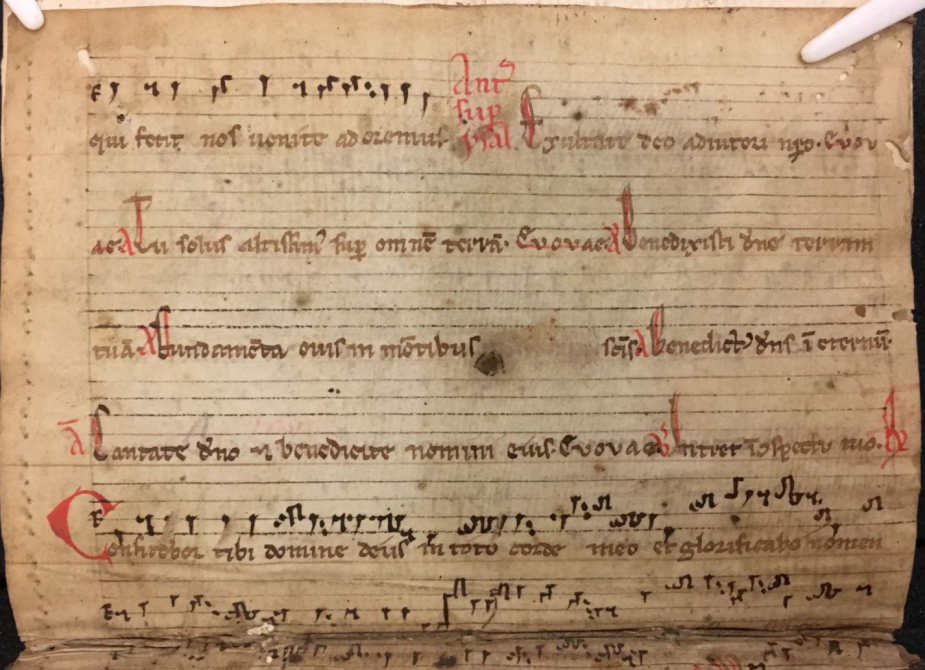 qui fecit nos venite adoremus. Antˀ sup̱ psal Exultate deo adiutori nr̄o. Evov
ae A Tu solus altissim᷒ sup̱ omnē terrā. Evovae A Benedixisti dn̄e terram
tuā. A Fundamēta eius in mōtibus sc̄is A Benedict᷒ dn̄s ī eternū.
A Cantate dn̄o et benedicite nomini eius. Evovae Intret ī cōspectu tuo. R
Confitebor tibi domine deus in toto corde meo et glorificabo nomen